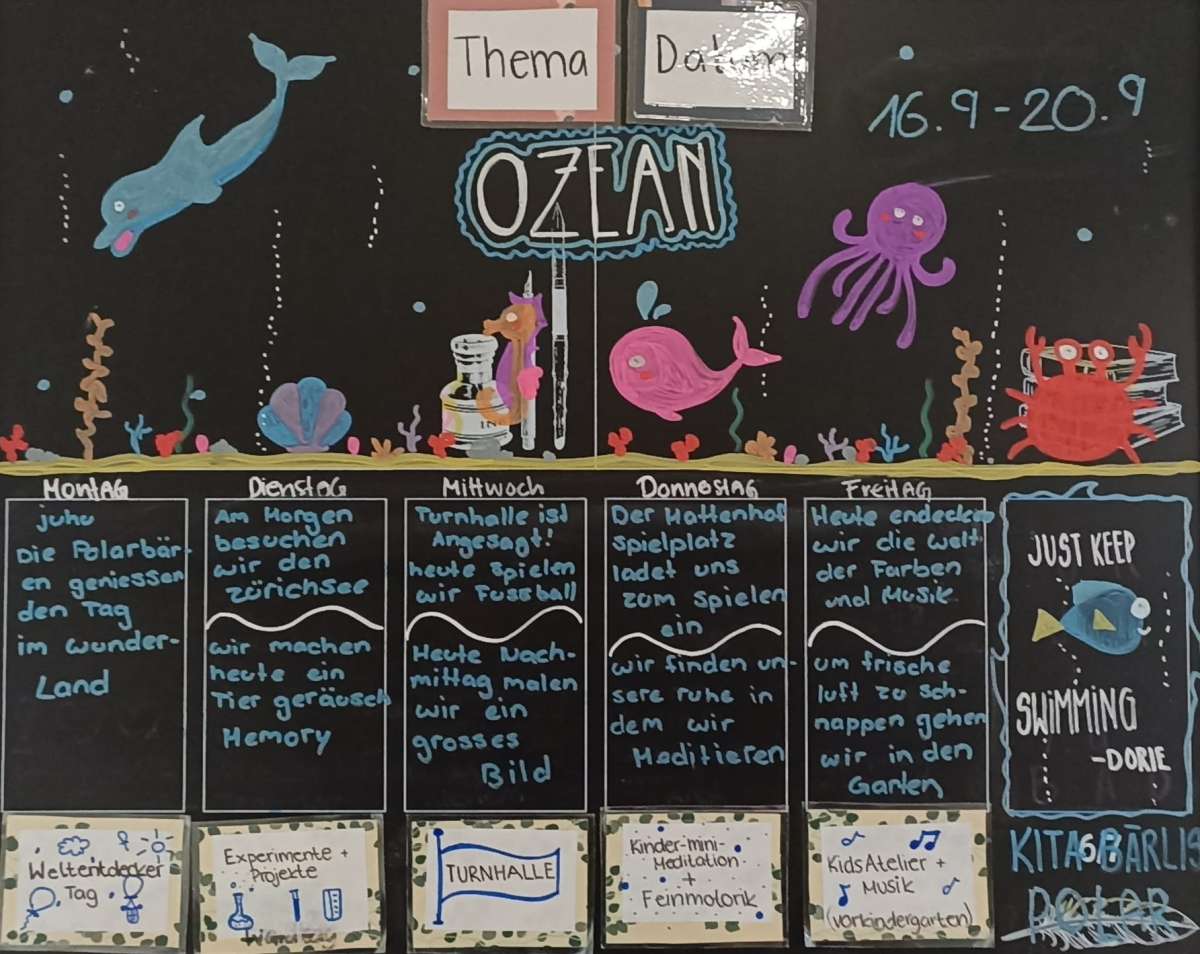 Thema
Datum
16.9-20.9
OZEAN
IN
MONTAG
juhu
Die Polarbär-
en geniessen
den Tag
im wunder-
Land
Weltentdecker
Tag
DIENSTAG
Am Morgen
besuchen
wir den
zürichsee
wir machen
heute ein
Tier geräusch
Memory
Experimente +
Projekte
MITTWOCH
Turnhalle ist
Angesagt!
heute spielen
wir Fussball
Heute Nach-
mittag malen
wir ein
grosses
Bild
TURNHALLE
DONNESTAG
Der Hattenhof
spielplatz
ladet uns
zum spielen
ein
wir finden un-
sere ruhe in
dem wir
Meditieren
Kinder-mini-
Meditation
+
Feinmotorik
FREITAG
Heute endecken
wir die welt
der Farben
und Musik
um frische
luft zu sch-
nappen gehen
wir in den
Garten
KidsAtelier +
Musik
(vorkindergarten)
JUST KEEP
SWIMMING
-DORIE
KITA BÄRLI
POLAR